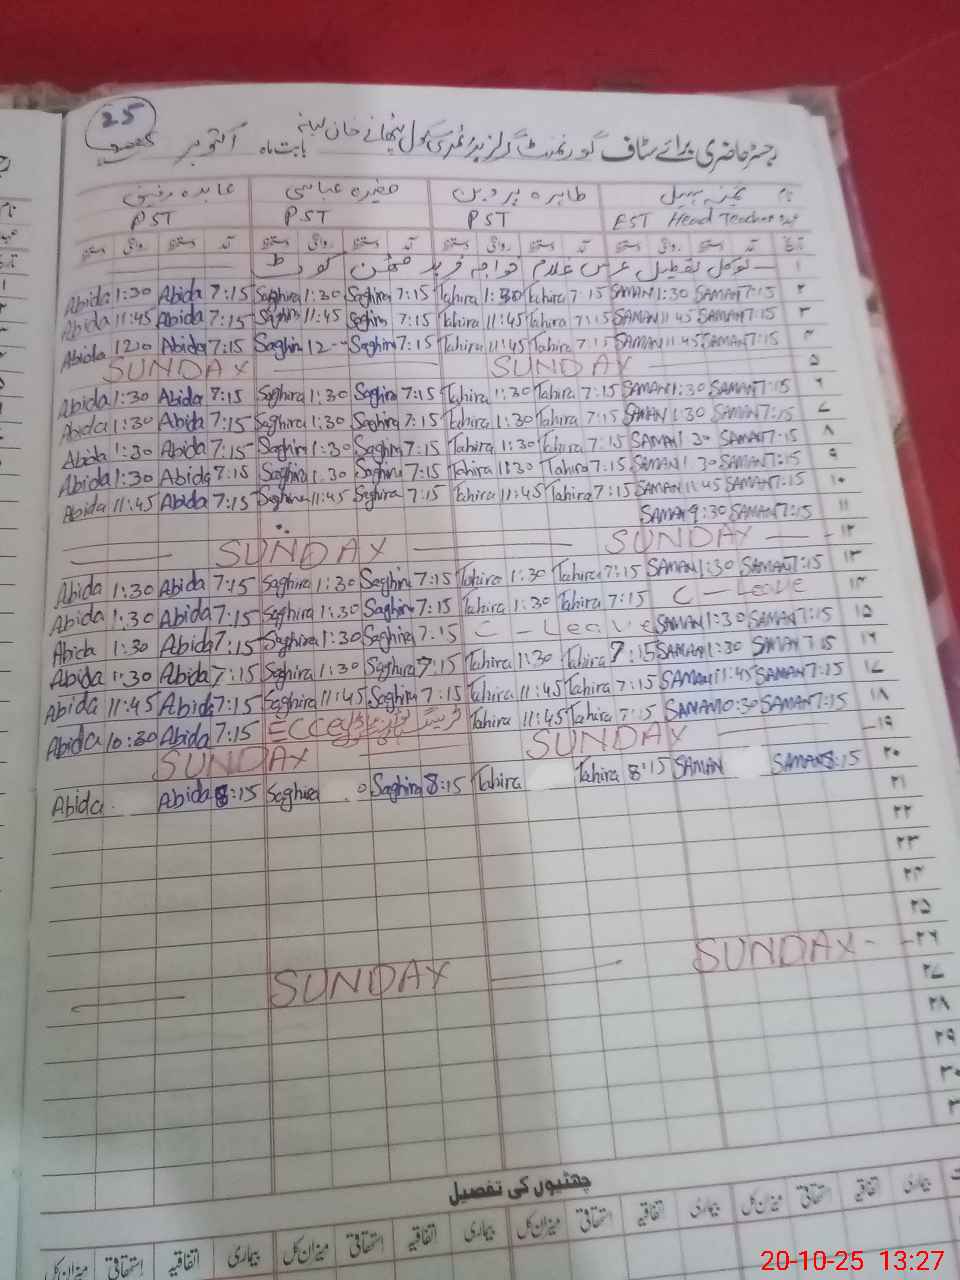 25
رجسٹر حاضری برائے سٹاف گورنمنٹ گرلز پرائمری سکول بابت ماہ اکتوبر
نام طاہرہ پروین صغیرہ عباسی عابدہ رفیق
EST Head Teacher PST PST PST
تاریخ آمد دستخط روانگی دستخط آمد دستخط روانگی دستخط آمد دستخط روانگی دستخط آمد دستخط روانگی دستخط
۱ لوکل تعطیل عرس غلام خواجہ فرید مٹھن کوٹ
Abida 1:30 Abida 7:15 Saghira 1:30 Saghira 7:15 Tahira 1:30 Tahira 7:15 SAMAN 1:30 SAMAN 7:15 ۲
Abida 11:45 Abida 7:15 Saghira 11:45 Saghira 7:15 Tahira 11:45 Tahira 7:15 SAMAN 11:45 SAMAN 7:15 ۳
Abida Abida 7:15 Saghira 12 Saghira 7:15 Tahira 11:45 Tahira 7:15 SAMAN 11:45 SAMAN 7:15 ۴
SUNDAY SUNDAY ۵
Abida 1:30 Abida 7:15 Saghira 1:30 Saghira 7:15 Tahira 1:30 Tahira 7:15 SAMAN 1:30 SAMAN 7:15 ۶
Abida 1:30 Abida 7:15 Saghira 1:30 Saghira 7:15 Tahira 1:30 Tahira 7:15 SAMAN 1:30 SAMAN 7:15 ۷
Abida 1:30 Abida 7:15 Saghira 1:30 Saghira 7:15 Tahira 1:30 Tahira 7:15 SAMAN 1:30 SAMAN 7:15 ۸
Abida 1:30 Abida 7:15 Saghira 1:30 Saghira 7:15 Tahira 1:30 Tahira 7:15 SAMAN 1:30 SAMAN 7:15 ۹
Abida 11:45 Abida 7:15 Saghira 11:45 Saghira 7:15 Tahira 11:45 Tahira 7:15 SAMAN 11:45 SAMAN 7:15 ۱۰
SAMAN 9:30 SAMAN 7:15 ۱۱
SUNDAY SUNDAY ۱۲
Abida 1:30 Abida 7:15 Saghira 1:30 Saghira 7:15 Tahira 1:30 Tahira 7:15 SAMAN 1:30 SAMAN 7:15 ۱۳
Abida 1:30 Abida 7:15 Saghira 1:30 Saghira 7:15 Tahira 1:30 Tahira 7:15 C - Leave ۱۴
Abida 1:30 Abida 7:15 Saghira 1:30 Saghira 7:15 C - Leave SAMAN 1:30 SAMAN 7:15 ۱۵
Abida 1:30 Abida 7:15 Saghira 1:30 Saghira 7:15 Tahira 1:30 Tahira 7:15 SAMAN 1:30 SAMAN 7:15 ۱۶
Abida 11:45 Abida 7:15 Saghira 11:45 Saghira 7:15 Tahira 11:45 Tahira 7:15 SAMAN 11:45 SAMAN 7:15 ۱۷
Abida 10:30 Abida 7:15 ECCE ٹریننگ Tahira 11:45 Tahira 7:15 SAMAN 10:30 SAMAN 7:15 ۱۸
SUNDAY SUNDAY ۱۹
Abida Abida 8:15 Saghira Saghira 8:15 Tahira Tahira 8:15 SAMAN SAMAN 8:15 ۲۰
۲۱
۲۲
۲۳
۲۴
۲۵
SUNDAY SUNDAY ۲۶
۲۷
۲۸
۲۹
۳۰
چھٹیوں کی تفصیل
بیماری اتفاقیہ استحقاقی میزان کل بیماری اتفاقیہ استحقاقی میزان کل بیماری اتفاقیہ استحقاقی میزان کل بیماری اتفاقیہ استحقاقی میزان کل
20-10-25 13:27